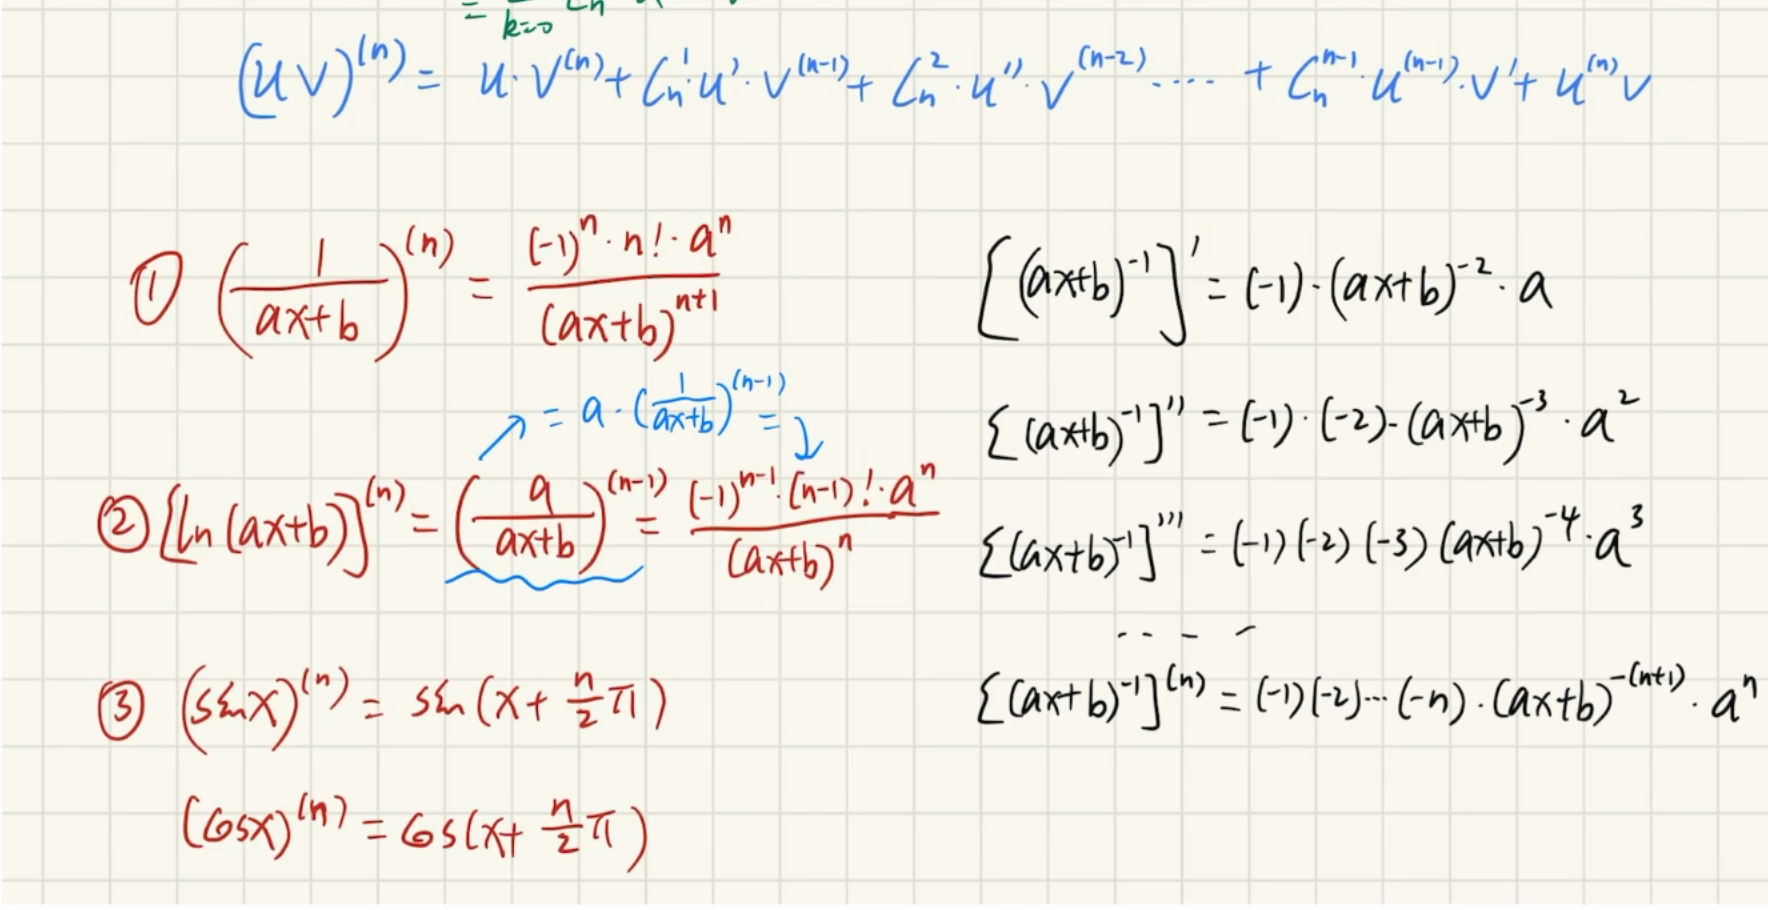 = Σ k=0 Cn
(uv)^(n) = u·v^(n) + Cn^1·u'·v^(n-1) + Cn^2·u''·v^(n-2) ···· + Cn^(n-1)·u^(n-1)·v' + u^(n)v
① (1/(ax+b))^(n) = ((-1)^n·n!·a^n)/((ax+b)^(n+1))
= a·(1/(ax+b))^(n-1) =
② [ln(ax+b)]^(n) = (a/(ax+b))^(n-1) = ((-1)^(n-1)·(n-1)!·a^n)/((ax+b)^n)
③ (sinx)^(n) = sin(x+(n/2)π)
(cosx)^(n) = cos(x+(n/2)π)
[(ax+b)^-1]' = (-1)·(ax+b)^-2·a
[(ax+b)^-1]'' = (-1)·(-2)·(ax+b)^-3·a^2
[(ax+b)^-1]''' = (-1)(-2)(-3)(ax+b)^-4·a^3
····
[(ax+b)^-1]^(n) = (-1)(-2)···(-n)·(ax+b)^-(n+1)·a^n